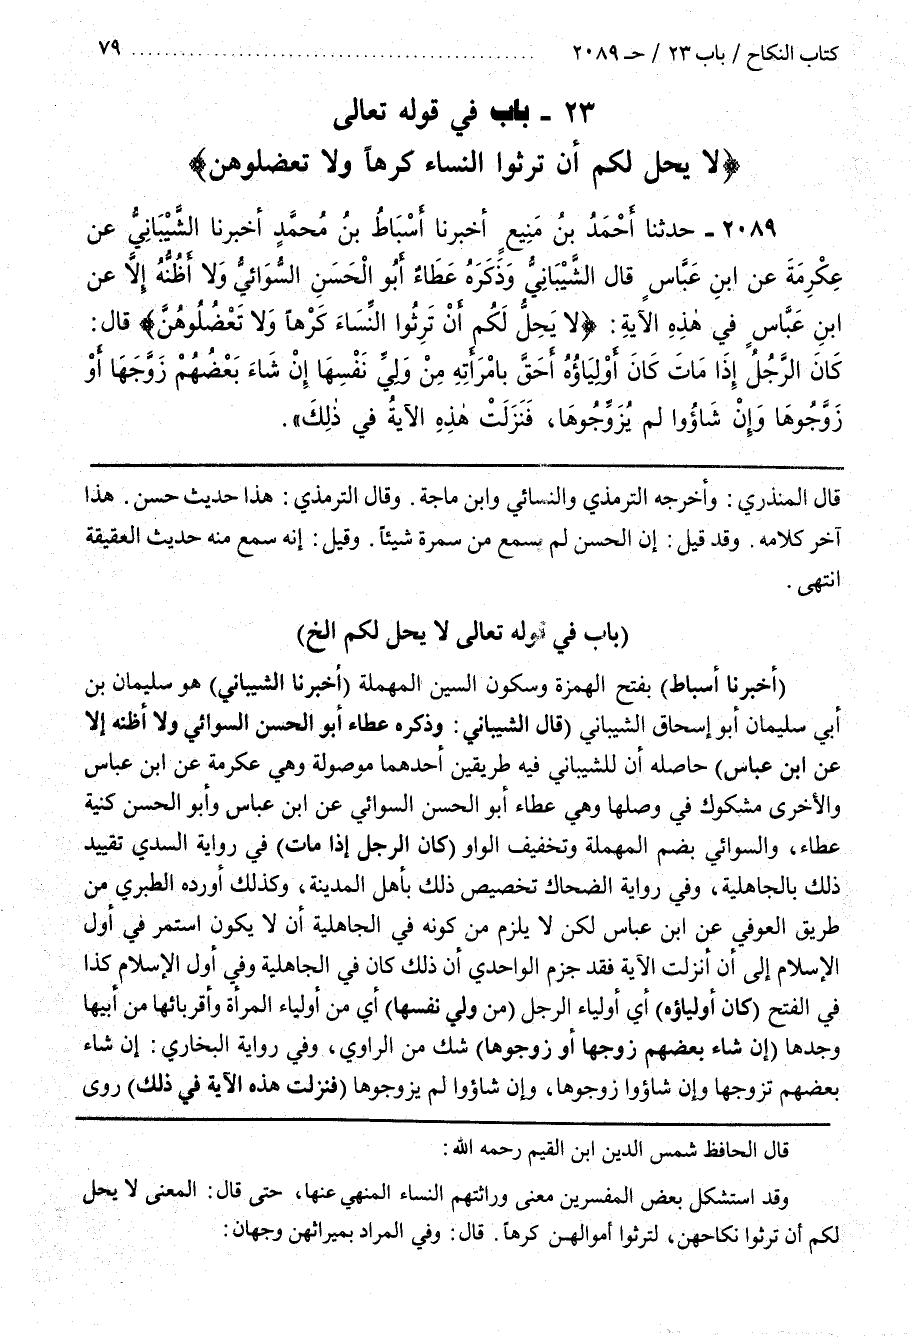 كتاب النكاح / باب ٢٣ / حـ ٢٠٨٩ ........................................ ٧٩
٢٣ ـ باب في قوله تعالى
﴿لا يحل لكم أن ترثوا النساء كرهاً ولا تعضلوهن﴾
٢٠٨٩ ـ حدثنا أَحْمَدُ بنُ مَنِيعٍ أخبرنا أَسْبَاطُ بنُ مُحمَّدٍ أخبرنا الشَّيْبَانِيُّ عن
عِكْرِمَةَ عن ابنِ عَبَّاسٍ قال الشَّيْبَانِيُّ وَذَكَرَهُ عَطَاءٌ أَبُو الْحَسَنِ السُّوَائيُّ وَلا أَظُنُّهُ إِلَّا عن
ابنِ عَبَّاسٍ في هٰذِهِ الآيةِ: ﴿لا يَحِلُّ لَكُم أَنْ تَرِثُوا النِّسَاءَ كَرْهاً وَلا تَعْضُلُوهُنَّ﴾ قال:
كَانَ الرَّجُلُ إِذَا مَاتَ كَانَ أَوْلِيَاؤُهُ أَحَقَّ بامْرَأَتِهِ مِنْ وَلِيِّ نَفْسِهَا إِنْ شَاءَ بَعْضُهُمْ زَوَّجَهَا أَوْ
زَوَّجُوهَا وَإِنْ شَاؤُوا لم يُزَوِّجُوهَا، فَنَزَلَتْ هٰذِهِ الآيةُ في ذٰلِكَ».
قال المنذري: وأخرجه الترمذي والنسائي وابن ماجة. وقال الترمذي: هذا حديث حسن. هذا
آخر كلامه. وقد قيل: إن الحسن لم يسمع من سمرة شيئاً. وقيل: إنه سمع منه حديث العقيقة
انتهى.
(باب في قوله تعالى لا يحل لكم الخ)
(أخبرنا أسباط) بفتح الهمزة وسكون السين المهملة (أخبرنا الشيباني) هو سليمان بن
أبي سليمان أبو إسحاق الشيباني (قال الشيباني: وذكره عطاء أبو الحسن السوائي ولا أظنه إلا
عن ابن عباس) حاصله أن للشيباني فيه طريقين أحدهما موصولة وهي عكرمة عن ابن عباس
والأخرى مشكوك في وصلها وهي عطاء أبو الحسن السوائي عن ابن عباس وأبو الحسن كنية
عطاء، والسوائي بضم المهملة وتخفيف الواو (كان الرجل إذا مات) في رواية السدي تقييد
ذلك بالجاهلية، وفي رواية الضحاك تخصيص ذلك بأهل المدينة، وكذلك أورده الطبري من
طريق العوفي عن ابن عباس لكن لا يلزم من كونه في الجاهلية أن لا يكون استمر في أول
الإسلام إلى أن أنزلت الآية فقد جزم الواحدي أن ذلك كان في الجاهلية وفي أول الإسلام كذا
في الفتح (كان أولياؤه) أي أولياء الرجل (من ولي نفسها) أي من أولياء المرأة وأقربائها من أبيها
وجدها (إن شاء بعضهم زوجها أو زوجوها) شك من الراوي، وفي رواية البخاري: إن شاء
بعضهم تزوجها وإن شاؤوا زوجوها، وإن شاؤوا لم يزوجوها (فنزلت هذه الآية في ذلك) روى
قال الحافظ شمس الدين ابن القيم رحمه الله:
وقد استشكل بعض المفسرين معنى وراثتهم النساء المنهي عنها، حتى قال: المعنى لا يحل
لكم أن ترثوا نكاحهن، لترثوا أموالهـن كرهاً. قال: وفي المراد بميراثهن وجهان: